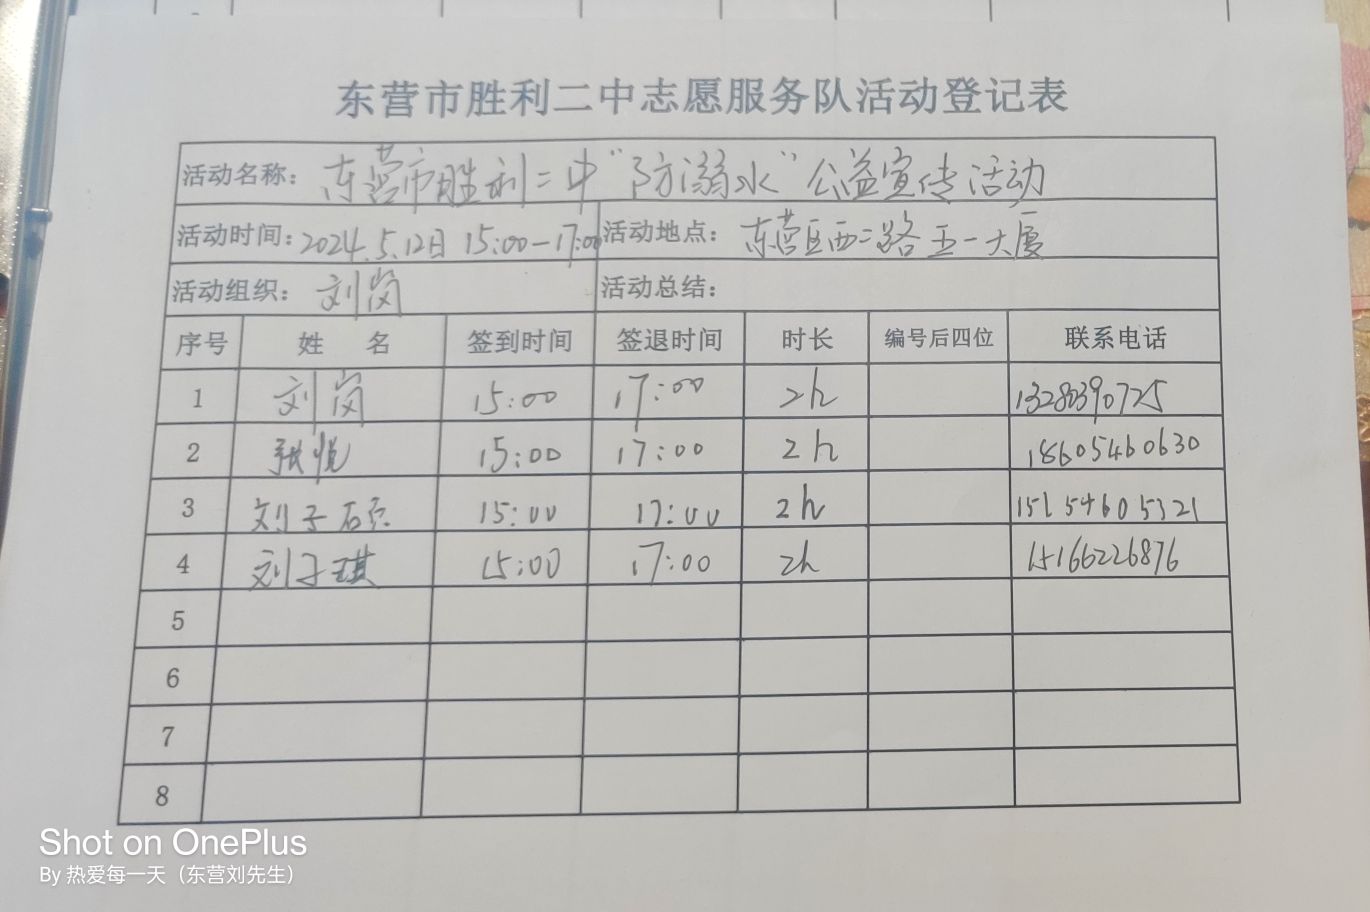 东营市胜利二中志愿服务队活动登记表
活动名称： 东营市胜利二中“防溺水”公益宣传活动
活动时间：2024.5.12日 15:00-17:00 活动地点： 东营区西二路五一大厦
活动组织： 刘岗 活动总结：
序号 姓 名 签到时间 签退时间 时长 编号后四位 联系电话
1 刘岗 15:00 17:00 2h 13280390725
2 张悦 15:00 17:00 2h 18605460630
3 刘子硕 15:00 17:00 2h 15154605321
4 刘子琪 15:00 17:00 2h 15166226876
5
6
7
8
Shot on OnePlus
By 热爱每一天（东营刘先生）